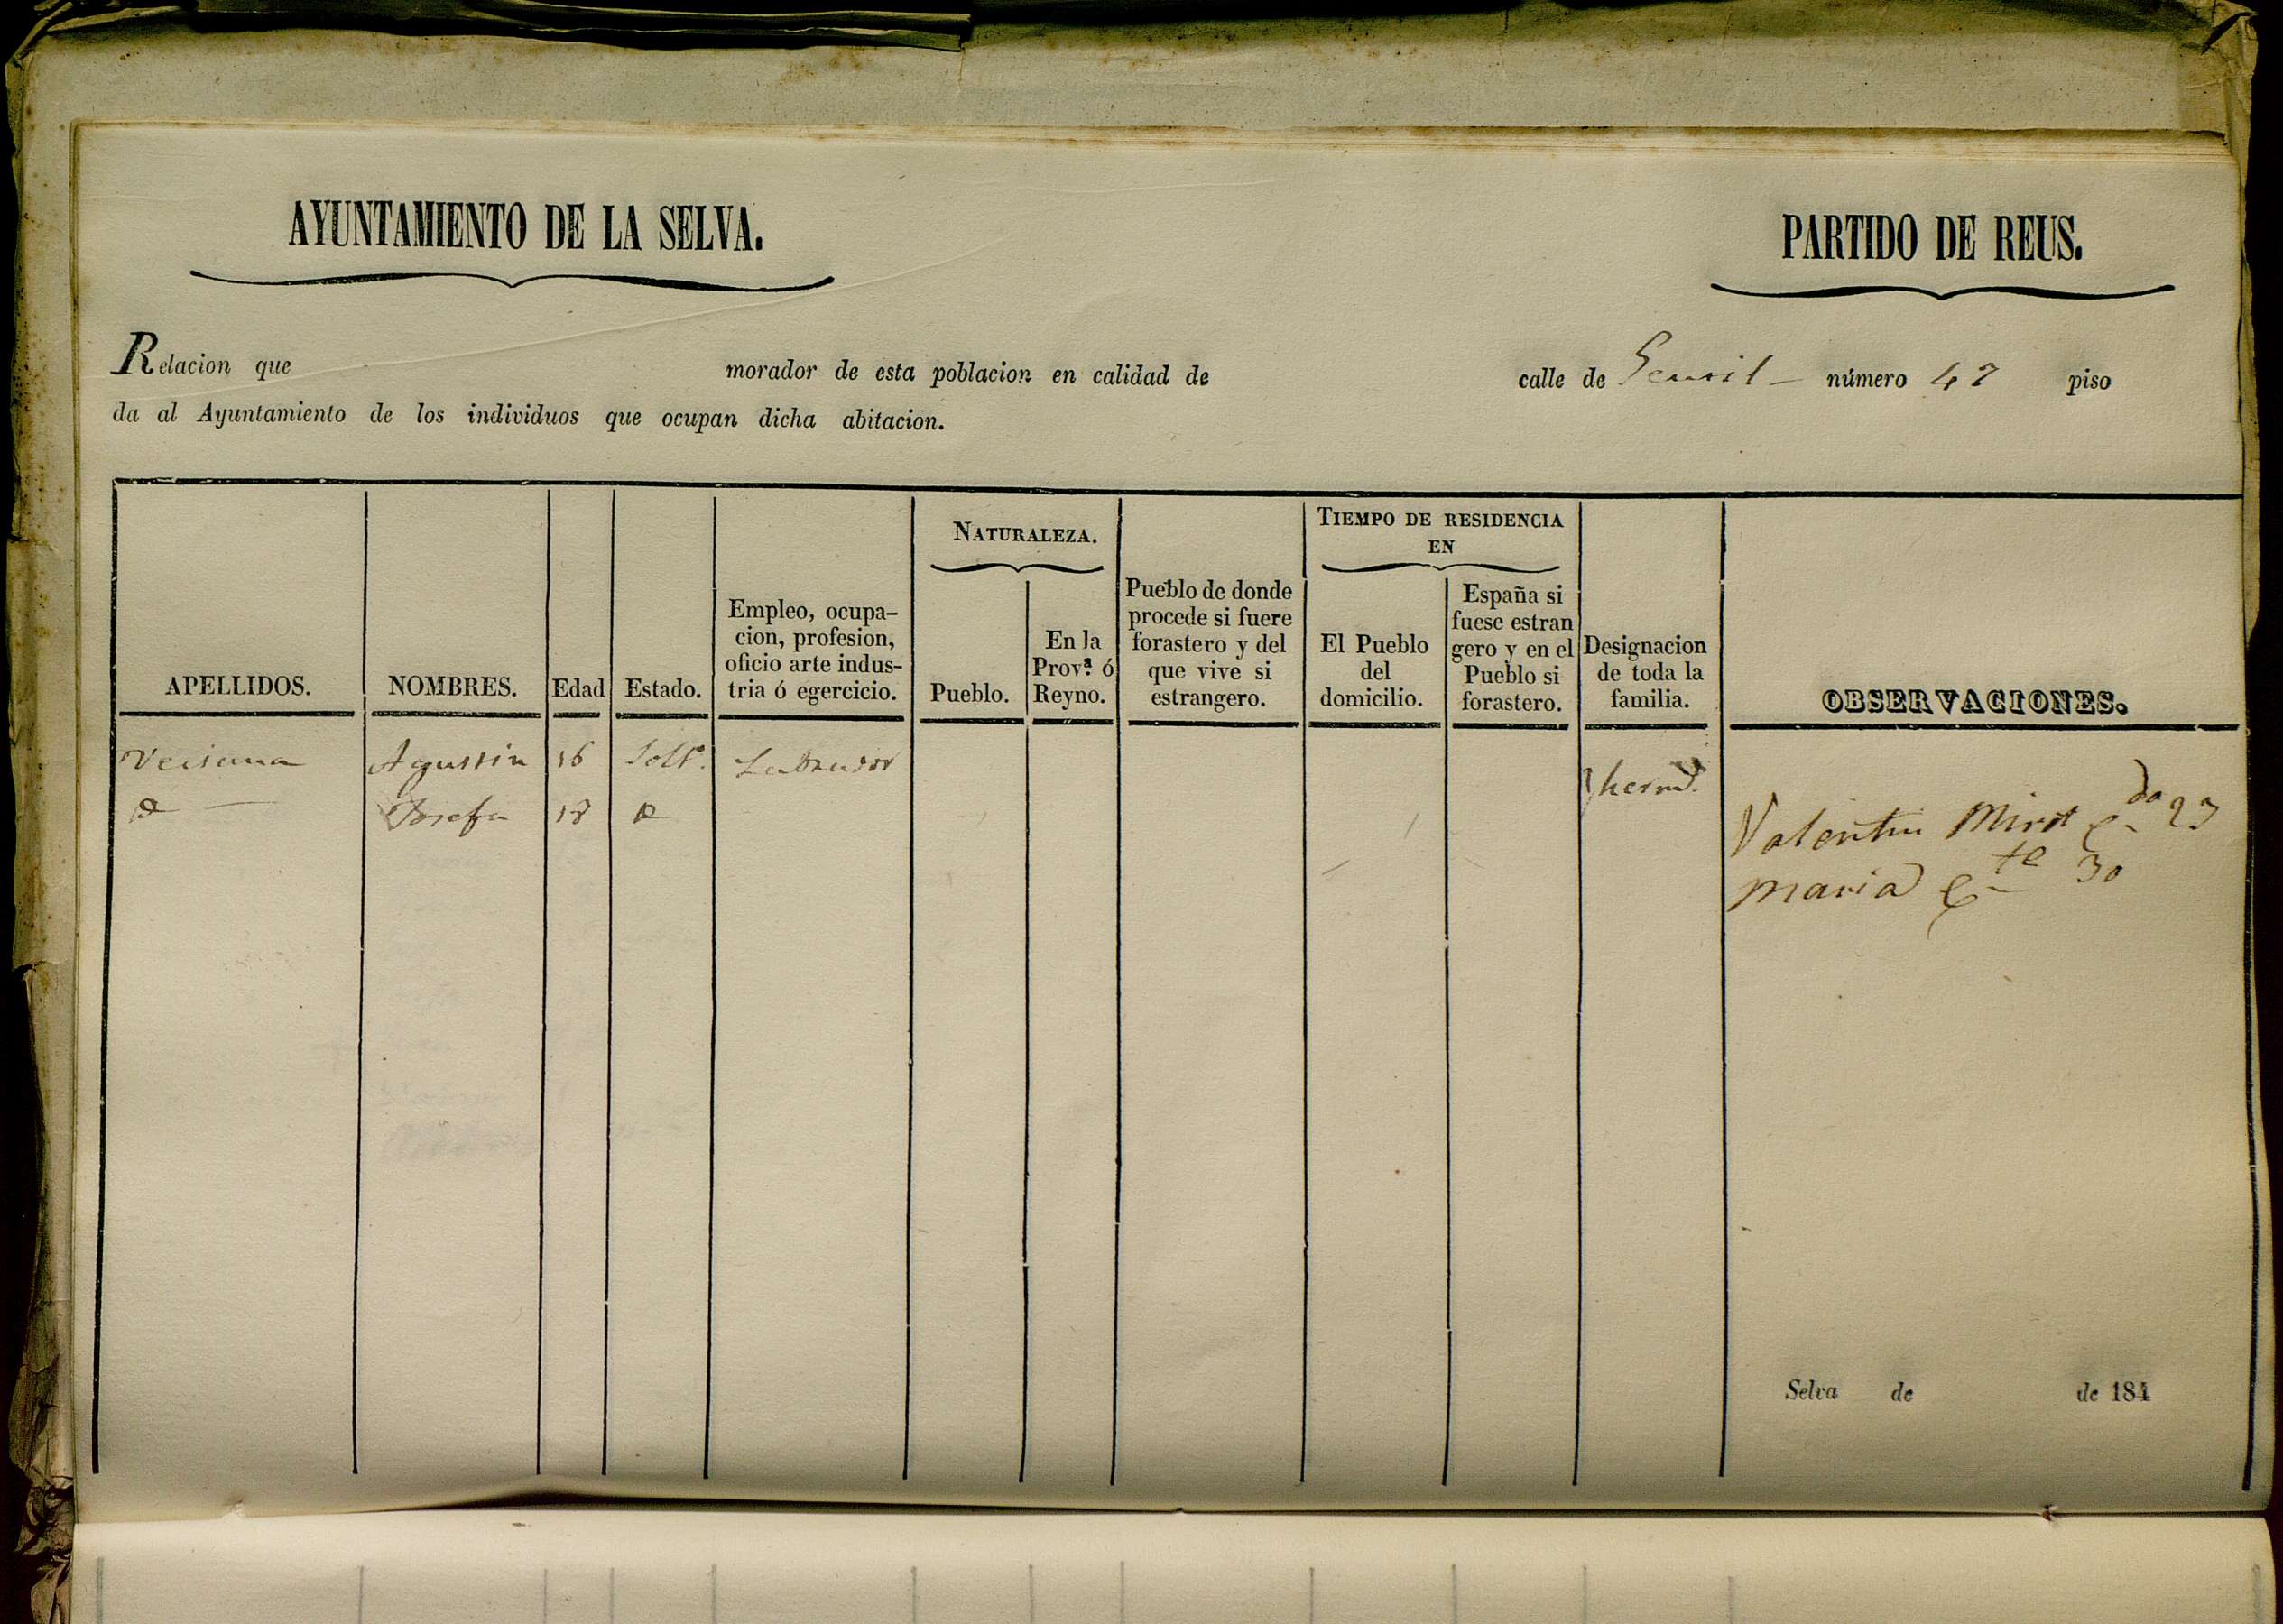 AYUNTAMIENTO DE LA SELVA.
PARTIDO DE REUS.
Relacion que morador de esta poblacion en calidad de calle de número 47 piso
da al Ayuntamiento de los individuos que ocupan dicha abitacion.
APELLIDOS.
NOMBRES.
Edad
Estado.
Empleo, ocupa-
cion, profesion,
oficio arte indus-
tria ó egercicio.
NATURALEZA.
Pueblo.
En la
Prov.ª ó
Reyno.
Pueblo de donde
procede si fuere
forastero y del
que vive si
estrangero.
TIEMPO DE RESIDENCIA
EN
El Pueblo
del
domicilio.
España si
fuese estran
gero y en el
Pueblo si
forastero.
Designacion
de toda la
familia.
OBSERVACIONES.
Agustin 16 Solt.º Labrador
Josefa 18
Valentin 23
Maria 30
Selva de de 184